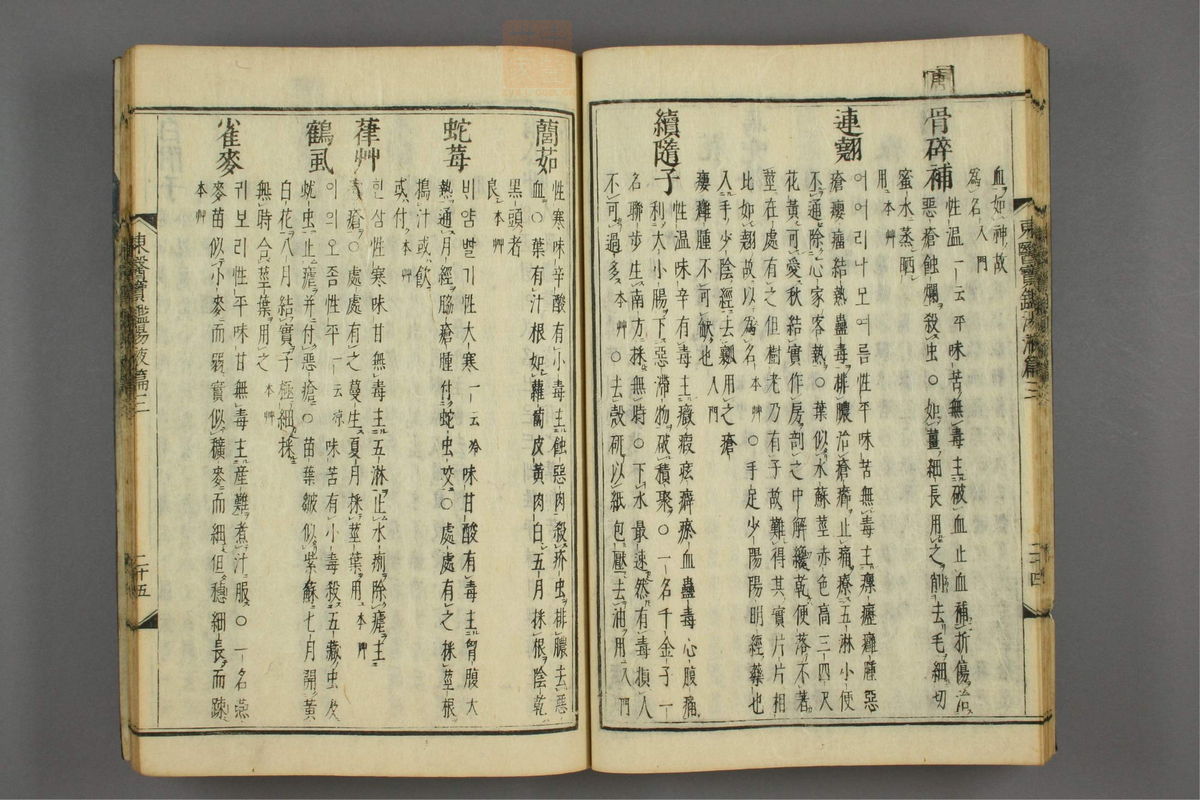 血如神故
爲名入門
骨碎補 性溫一云平味苦無毒主破血止血補折傷治
惡瘡蝕爛殺虫○如薑細長用之削去毛細切
蜜水蒸晒
用本艸
連翹 어어리나모여름性平味苦無毒主瘰癧癰腫惡
瘡癭瘤結熱蠱毒排膿治瘡癤止痛療五淋小便
不通除心家客熱○葉似水蘇莖赤色高三四尺
花黃可愛秋結實作房剖之中解纔乾便落不著
莖在處有之但樹老乃有子故難得其實片片相
比如翹故以爲名本艸○手足少陽陽明經藥也
入手少陰經去瓤用之瘡
瘻癰腫不可缺也入門
續隨子 性溫味辛有毒主癥瘕痃癖瘀血蠱毒心腹痛
利大小腸下惡滯物破積聚○一名千金子一
名聯步生南方採無時○下水最速然有毒損人
不可過多本艸○去殼硏以紙包壓去油用入門
東醫寶鑑湯液篇三
二十四
䕡茹 性寒味辛酸有小毒主蝕惡肉殺疥虫排膿去惡
血○葉有汁根如蘿蔔皮黃肉白五月採根陰乾
黑頭者
良本艸
蛇莓 비얌빨기性大寒一云冷味甘酸有毒主胷腹大
熱通月經脇瘡腫付蛇虫咬○處處有之採莖根
搗汁或飮
或付本艸
葎艸 한삼性寒味甘無毒主五淋止水痢除瘧主
癩瘡○處處有之蔓生夏月採莖葉用本艸
鶴虱 이의오좀性平一云凉味苦有小毒殺五藏虫及
蚘虫止瘧幷付惡瘡○苗葉皺似紫蘇七月開黃
白花八月結實子極細採
無時合莖葉用之本艸
雀麥 귀보리性平味甘無毒主産難煮汁服○一名燕
麥苗似小麥而弱實似穬麥而細但穗細長而踈
本艸
東醫寶鑑湯液篇三
二十五